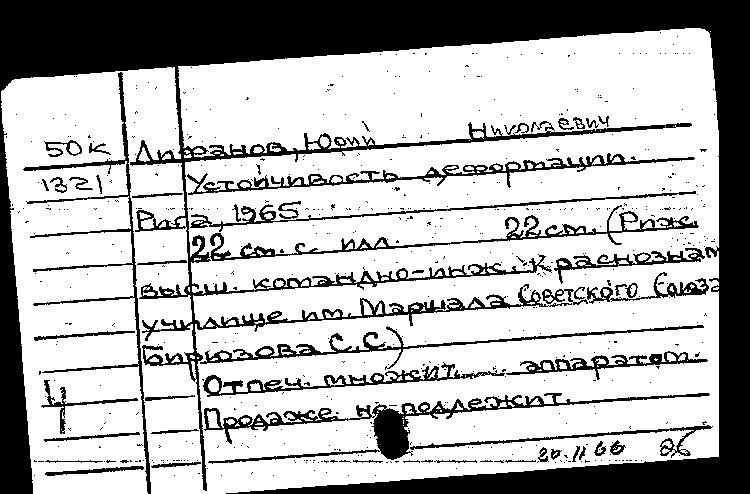 50к Лифанов, Юрий Николаевич
1321 Устойчивость деформации.
Рига, 1965.
22 ст. с илл. 22 см. (Риж.
высш. командно-инж. Краснознам
училище им. Маршала Советского Союза
Бирюзова С.С.)
Отпеч. множит. аппаратом.
Ч Продаже не подлежит.
20.11 66 26